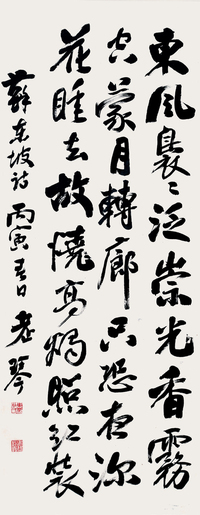 東風裊〻泛崇光香霧
空蒙月轉廊只恐夜深
花睡去故燒高燭照紅裝
蘇東坡詩 丙寅春日 老琴